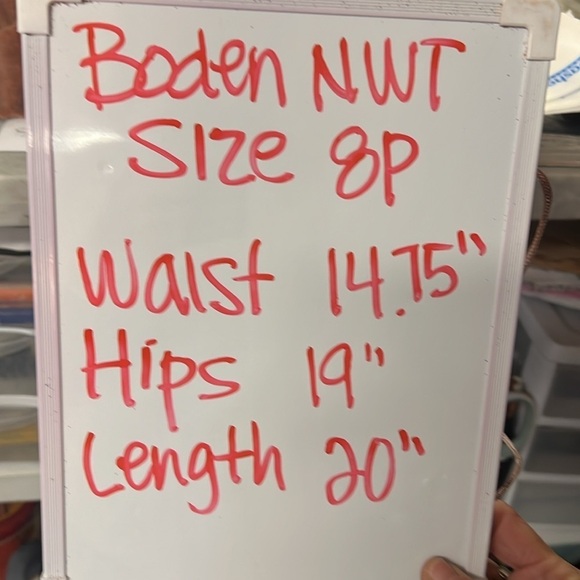 Boden NWT
Size 8P
Waist 14.75"
Hips 19"
Length 20"